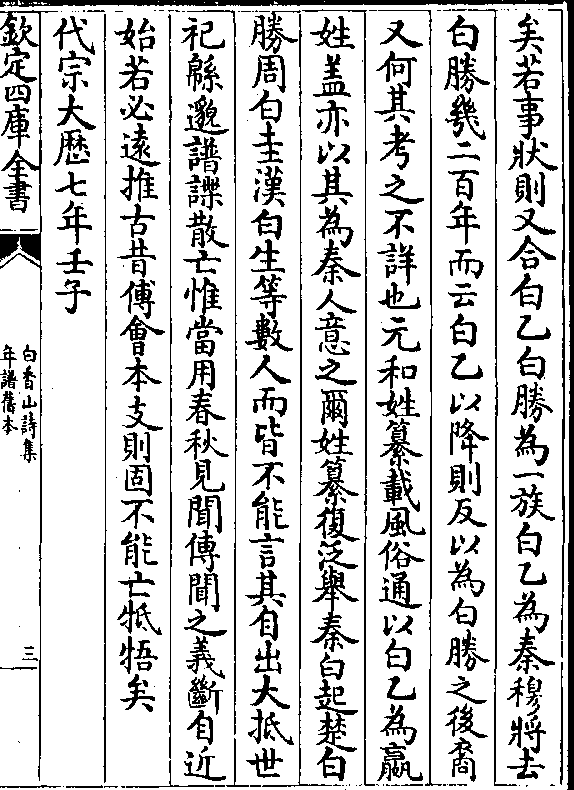 矣若事狀則又合白乙白勝為一族白乙為秦穆將去
白勝幾二百年而云白乙以降則反以為白勝之後裔
又何其考之不詳也元和姓纂載風俗通以白乙為嬴
姓盖亦以其為秦人意之爾姓纂復泛舉秦白起楚白
勝周白圭漢白生等數人而皆不能言其自出大抵世
祀緜邈譜諜散亡惟當用春秋見聞傳聞之義斷自近
始若必逺推古昔傅會本支則固不能亡牴牾矣
代宗大歴七年壬子
欽定四庫全書
白香山詩集
年譜舊本
三